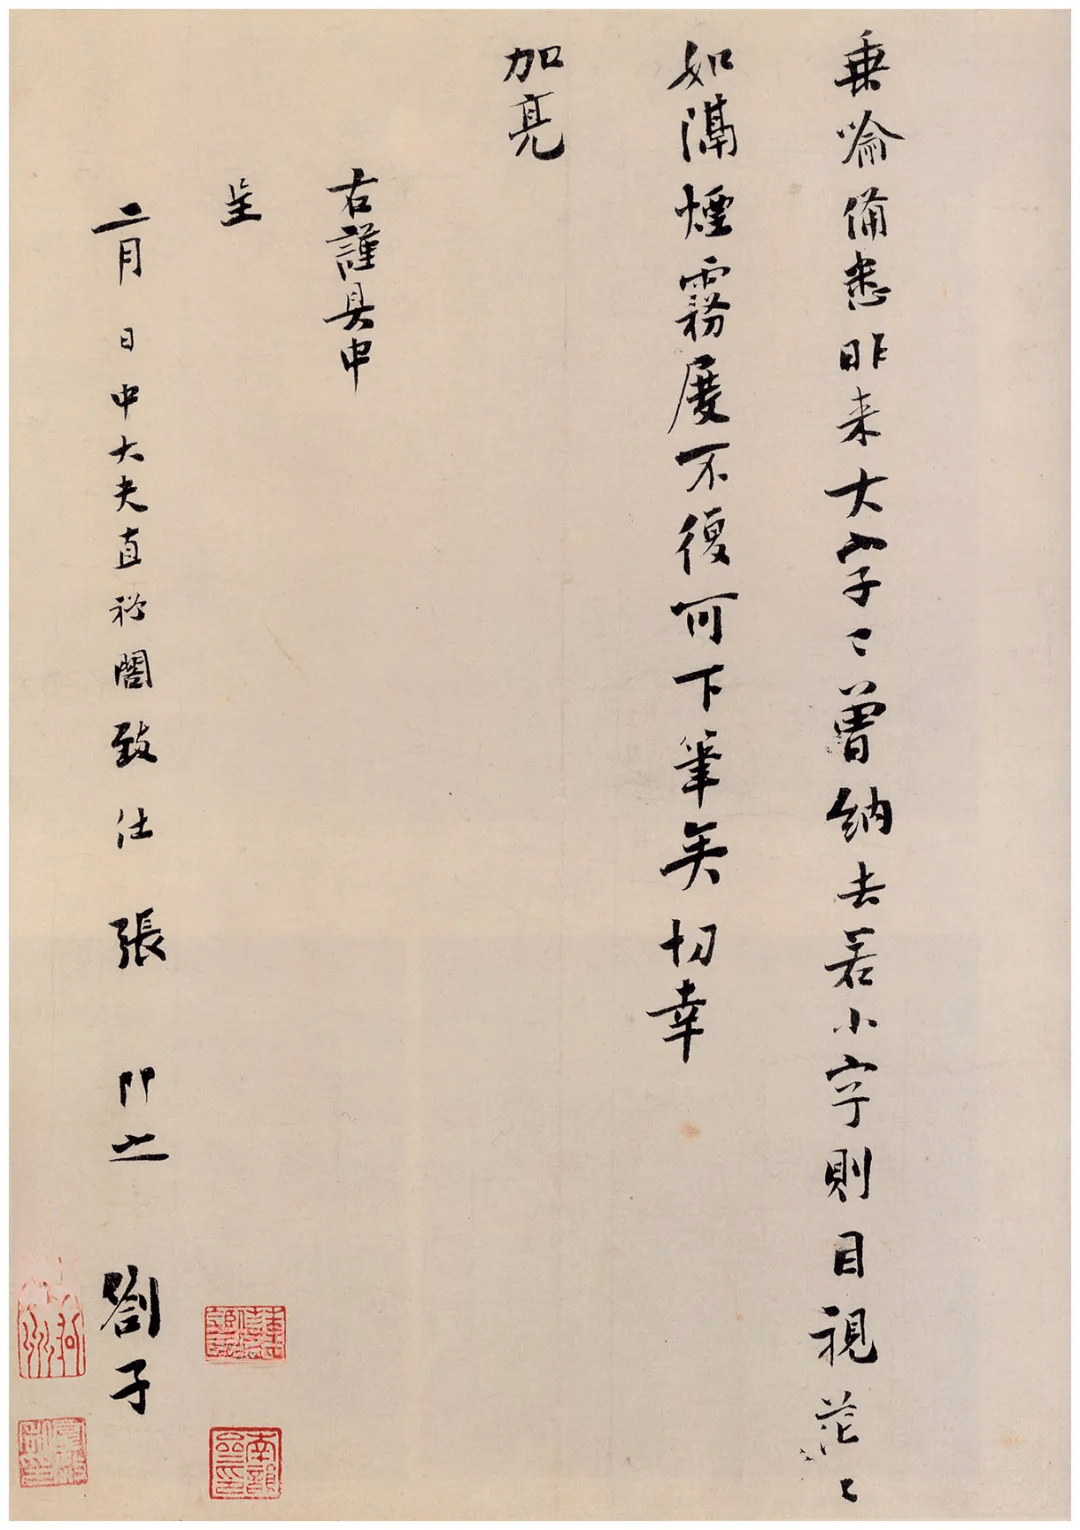 垂喻備悉昨来大字已曾納去若小字則目視茫〻
如隔煙霧度不復可下筆矣切幸
加亮
右謹具申
呈
二月 日中大夫直祕閣致仕張 即之 劄子